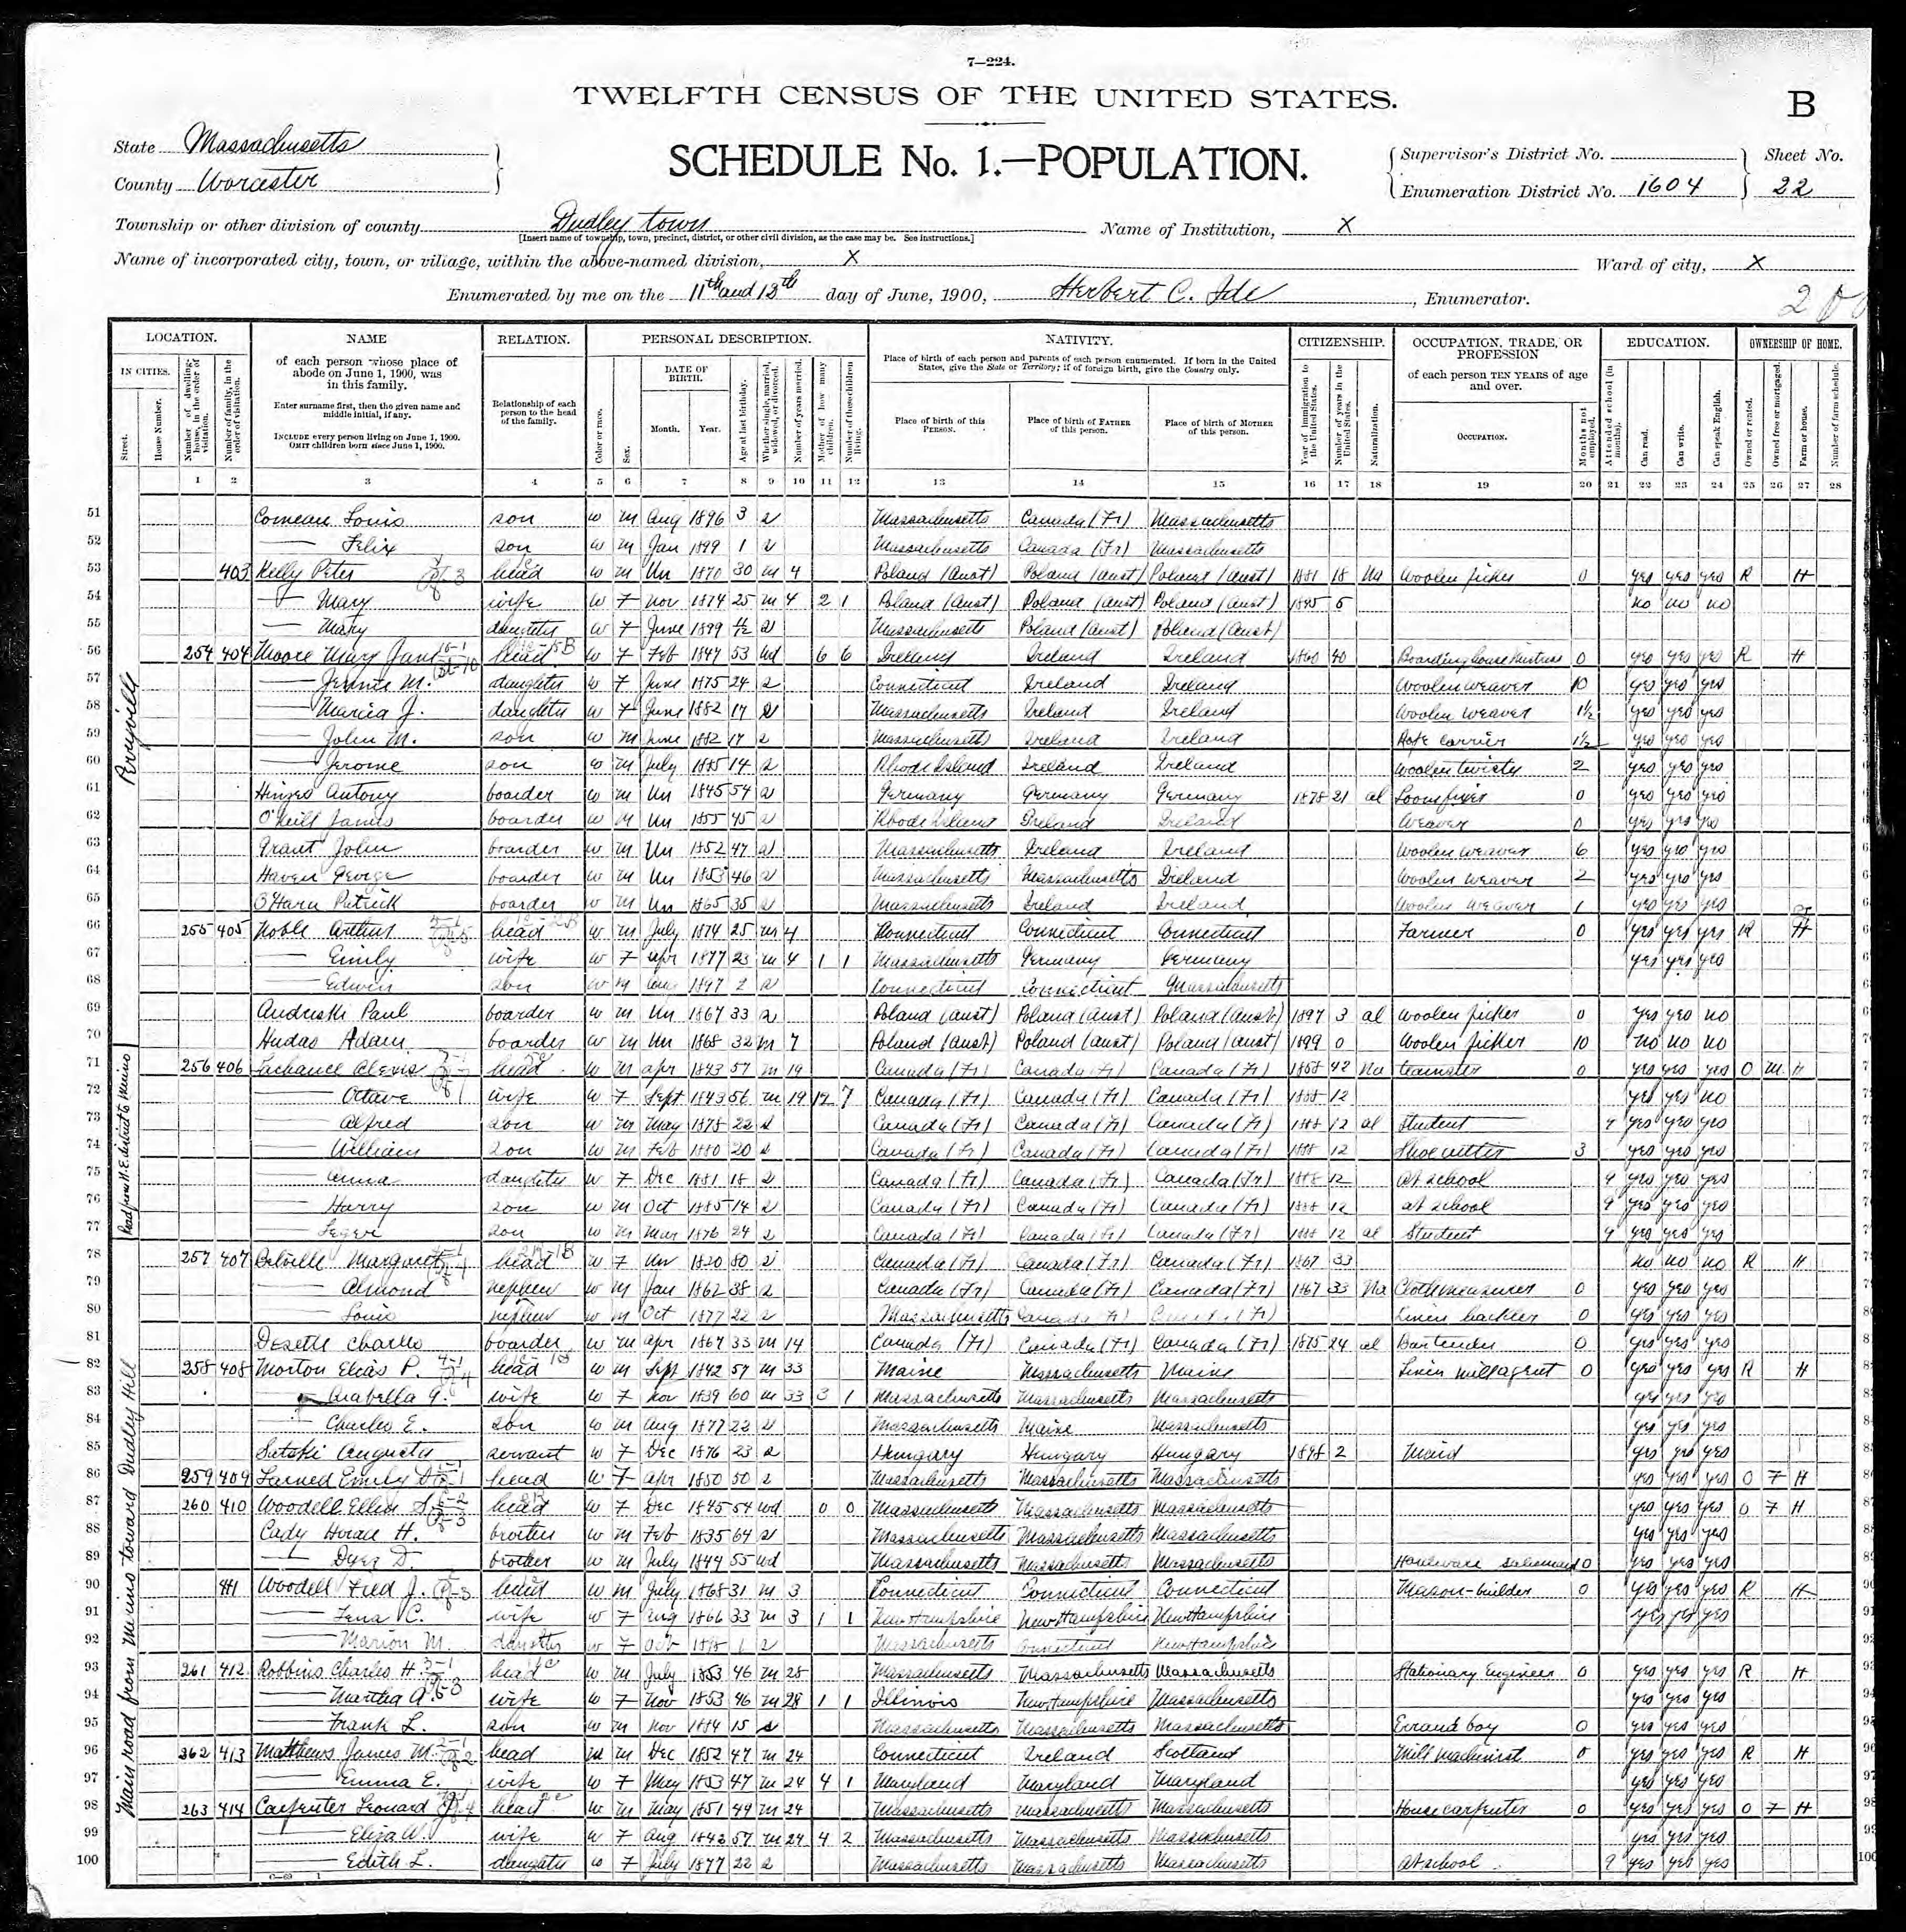 7—224.
TWELFTH CENSUS OF THE UNITED STATES.
B
State Massachusetts
County Worcester
SCHEDULE No. 1.—POPULATION.
Supervisor's District No.
Enumeration District No. 1604
Sheet No.
22
Township or other division of county Dudley town
[Insert name of township, town, precinct, district, or other civil division, as the case may be. See instructions.]
Name of Institution, X
Name of incorporated city, town, or village, within the above-named division, X
Ward of city, X
Enumerated by me on the 11th and 13th day of June, 1900, Herbert C. Ide, Enumerator.
LOCATION. NAME RELATION. PERSONAL DESCRIPTION. NATIVITY. CITIZENSHIP. OCCUPATION, TRADE, OR PROFESSION EDUCATION. OWNERSHIP OF HOME.
IN CITIES.
Street.
House Number.
Number of dwelling-house, in the order of visitation.
Number of family, in the order of visitation.
of each person whose place of abode on June 1, 1900, was in this family.
Enter surname first, then the given name and middle initial, if any.
INCLUDE every person living on June 1, 1900.
OMIT children born since June 1, 1900.
Relationship of each person to the head of the family.
Color or race.
Sex.
DATE OF BIRTH.
Month. Year.
Age at last birthday.
Whether single, married, widowed, or divorced.
Number of years married.
Mother of how many children.
Number of these children living.
Place of birth of each person and parents of each person enumerated. If born in the United States, give the State or Territory; if of foreign birth, give the Country only.
Place of birth of this PERSON.
Place of birth of FATHER of this person.
Place of birth of MOTHER of this person.
Year of immigration to the United States.
Number of years in the United States.
Naturalization.
of each person TEN YEARS of age and over.
OCCUPATION.
Months not employed.
Attended school (in months).
Can read.
Can write.
Can speak English.
Owned or rented.
Owned free or mortgaged.
Farm or house.
Number of farm schedule.
1 2 3 4 5 6 7 8 9 10 11 12 13 14 15 16 17 18 19 20 21 22 23 24 25 26 27 28
Perryville
51 Comeau Louis son W M Aug 1896 3 S Massachusetts Canada (Fr) Massachusetts
52 — Felix son W M Jan 1899 1 S Massachusetts Canada (Fr) Massachusetts
53 403 Kelly Peter head W M Un 1870 30 M 4 Poland (Aust) Poland (Aust) Poland (Aust) 1881 18 Na Woolen picker 0 yes yes yes R H
54 — Mary wife W F Nov 1874 25 M 4 2 1 Poland (Aust) Poland (Aust) Poland (Aust) 1895 5 no no no
55 — Mary daughter W F June 1899 S Massachusetts Poland (Aust) Poland (Aust)
56 254 404 Moore Mary Jane head W F Feb 1847 53 Wd 6 6 Ireland Ireland Ireland 1860 40 Boarding house mistress 0 yes yes yes R H
57 — Jennie M. daughter W F June 1875 24 S Connecticut Ireland Ireland Woolen weaver 10 yes yes yes
58 — Marcia J. daughter W F June 1882 17 S Massachusetts Ireland Ireland Woolen weaver 1½ yes yes yes
59 — John M. son W M June 1882 17 S Massachusetts Ireland Ireland Rope carrier 1½ yes yes yes
60 — Jerome son W M July 1885 14 S Rhode Island Ireland Ireland Woolen twister 2 yes yes yes
61 Antony boarder W M Un 1845 54 S Germany Germany Germany 1878 21 al Loomfixer 0 yes yes yes
62 O'Neill James boarder W M Un 1855 45 S Rhode Island Ireland Ireland Weaver 0 yes yes yes
63 Grant John boarder W M Un 1852 47 S Massachusetts Ireland Ireland Woolen weaver 6 yes yes yes
64 Haven George boarder W M Un 1853 46 S Massachusetts Massachusetts Ireland Woolen weaver 2 yes yes yes
65 O'Hara Patrick boarder W M Un 1865 35 S Massachusetts Ireland Ireland Woolen weaver 1 yes yes yes
66 255 405 Noble Arthur head W M July 1874 25 M 4 Connecticut Connecticut Connecticut Farmer 0 yes yes yes R H
67 — Emily wife W F Apr 1877 23 M 4 1 1 Massachusetts Germany Germany yes yes yes
68 — Edwin son W M Aug 1897 2 S Connecticut Connecticut Massachusetts
69 Andreski Paul boarder W M Un 1867 33 S Poland (Aust) Poland (Aust) Poland (Aust) 1897 3 al Woolen picker 0 yes yes no
70 Hudas Adam boarder W M Un 1868 32 M 7 Poland (Aust) Poland (Aust) Poland (Aust) 1899 0 Woolen picker 10 no no no
71 256 406 Lachance Clovis head W M Apr 1843 57 M 19 Canada (Fr) Canada (Fr) Canada (Fr) 1858 42 Na teamster 0 yes yes yes O M H
72 — Octave wife W F Sept 1843 56 M 19 12 7 Canada (Fr) Canada (Fr) Canada (Fr) 1888 12 yes yes no
73 — Alfred son W M May 1878 22 S Canada (Fr) Canada (Fr) Canada (Fr) 1888 12 al Student 9 yes yes yes
74 — William son W M Feb 1880 20 S Canada (Fr) Canada (Fr) Canada (Fr) 1888 12 Shoe cutter 3 yes yes yes
75 — Anna daughter W F Dec 1881 18 S Canada (Fr) Canada (Fr) Canada (Fr) 1888 12 At school 9 yes yes yes
76 — Harry son W M Oct 1885 14 S Canada (Fr) Canada (Fr) Canada (Fr) 1888 12 at school 9 yes yes yes
77 — Leger son W M Mar 1876 24 S Canada (Fr) Canada (Fr) Canada (Fr) 1888 12 al Student 9 yes yes yes
78 257 407 Belville Margaret head W F Un 1820 80 S Canada (Fr) Canada (Fr) Canada (Fr) 1867 33 no no no R H
79 — Almond nephew W M Jan 1862 38 S Canada (Fr) Canada (Fr) Canada (Fr) 1867 33 Na Cloth measurer 0 yes yes yes
80 — Louis nephew W M Oct 1877 22 S Massachusetts Canada (Fr) Canada (Fr) Linen hackler 0 yes yes yes
81 Desette Charles boarder W M Apr 1867 33 M 14 Canada (Fr) Canada (Fr) Canada (Fr) 1875 24 al Bartender 0 yes yes yes
Main road from Merino toward Dudley Hill
82 258 408 Morton Elias P. head W M Sept 1842 57 M 33 Maine Massachusetts Maine Linen mill agent 0 yes yes yes R H
83 — Arabella G. wife W F Nov 1839 60 M 33 3 1 Massachusetts Massachusetts Massachusetts yes yes yes
84 — Charles E. son W M Aug 1877 22 S Massachusetts Maine Massachusetts yes yes yes
85 Augusta servant W F Dec 1876 23 S Hungary Hungary Hungary 1898 2 Maid yes yes yes
86 259 409 Larned Emily head W F Apr 1850 50 S Massachusetts Massachusetts Massachusetts yes yes yes O F H
87 260 410 Woodell Ellen S. head W F Dec 1845 54 Wd 0 0 Massachusetts Massachusetts Massachusetts yes yes yes O F H
88 Cady Hiram H. brother W M Feb 1835 64 S Massachusetts Massachusetts Massachusetts yes yes yes
89 — Dyer D. brother W M July 1844 55 Wd Massachusetts Massachusetts Massachusetts Hardware salesman 0 yes yes yes
90 411 Woodell Fred J. head W M July 1868 31 M 3 Connecticut Connecticut Connecticut Mason-builder 0 yes yes yes R H
91 — Lena C. wife W F Aug 1866 33 M 3 1 1 New Hampshire New Hampshire New Hampshire yes yes yes
92 — Marion M. daughter W F Oct 1898 1 S Massachusetts Connecticut New Hampshire
93 261 412 Robbins Charles H. head W M July 1853 46 M 28 Massachusetts Massachusetts Massachusetts Stationary Engineer 0 yes yes yes R H
94 — Martha A. wife W F Nov 1853 46 M 28 1 1 Illinois New Hampshire Massachusetts yes yes yes
95 — Frank L. son W M Nov 1884 15 S Massachusetts Massachusetts Massachusetts Errand boy 0 yes yes yes
96 262 413 Matthews James M. head W M Dec 1852 47 M 24 Connecticut Ireland Scotland Mill machinist 0 yes yes yes R H
97 — Emma E. wife W F May 1853 47 M 24 4 1 Maryland Maryland Maryland yes yes yes
98 263 414 Carpenter Leonard head W M May 1851 49 M 24 Massachusetts Massachusetts Massachusetts House carpenter 0 yes yes yes O F H
99 — Eliza W. wife W F Aug 1842 57 M 24 4 2 Massachusetts Massachusetts Massachusetts yes yes yes
100 — Edith L. daughter W F July 1877 22 S Massachusetts Massachusetts Massachusetts At school 9 yes yes yes